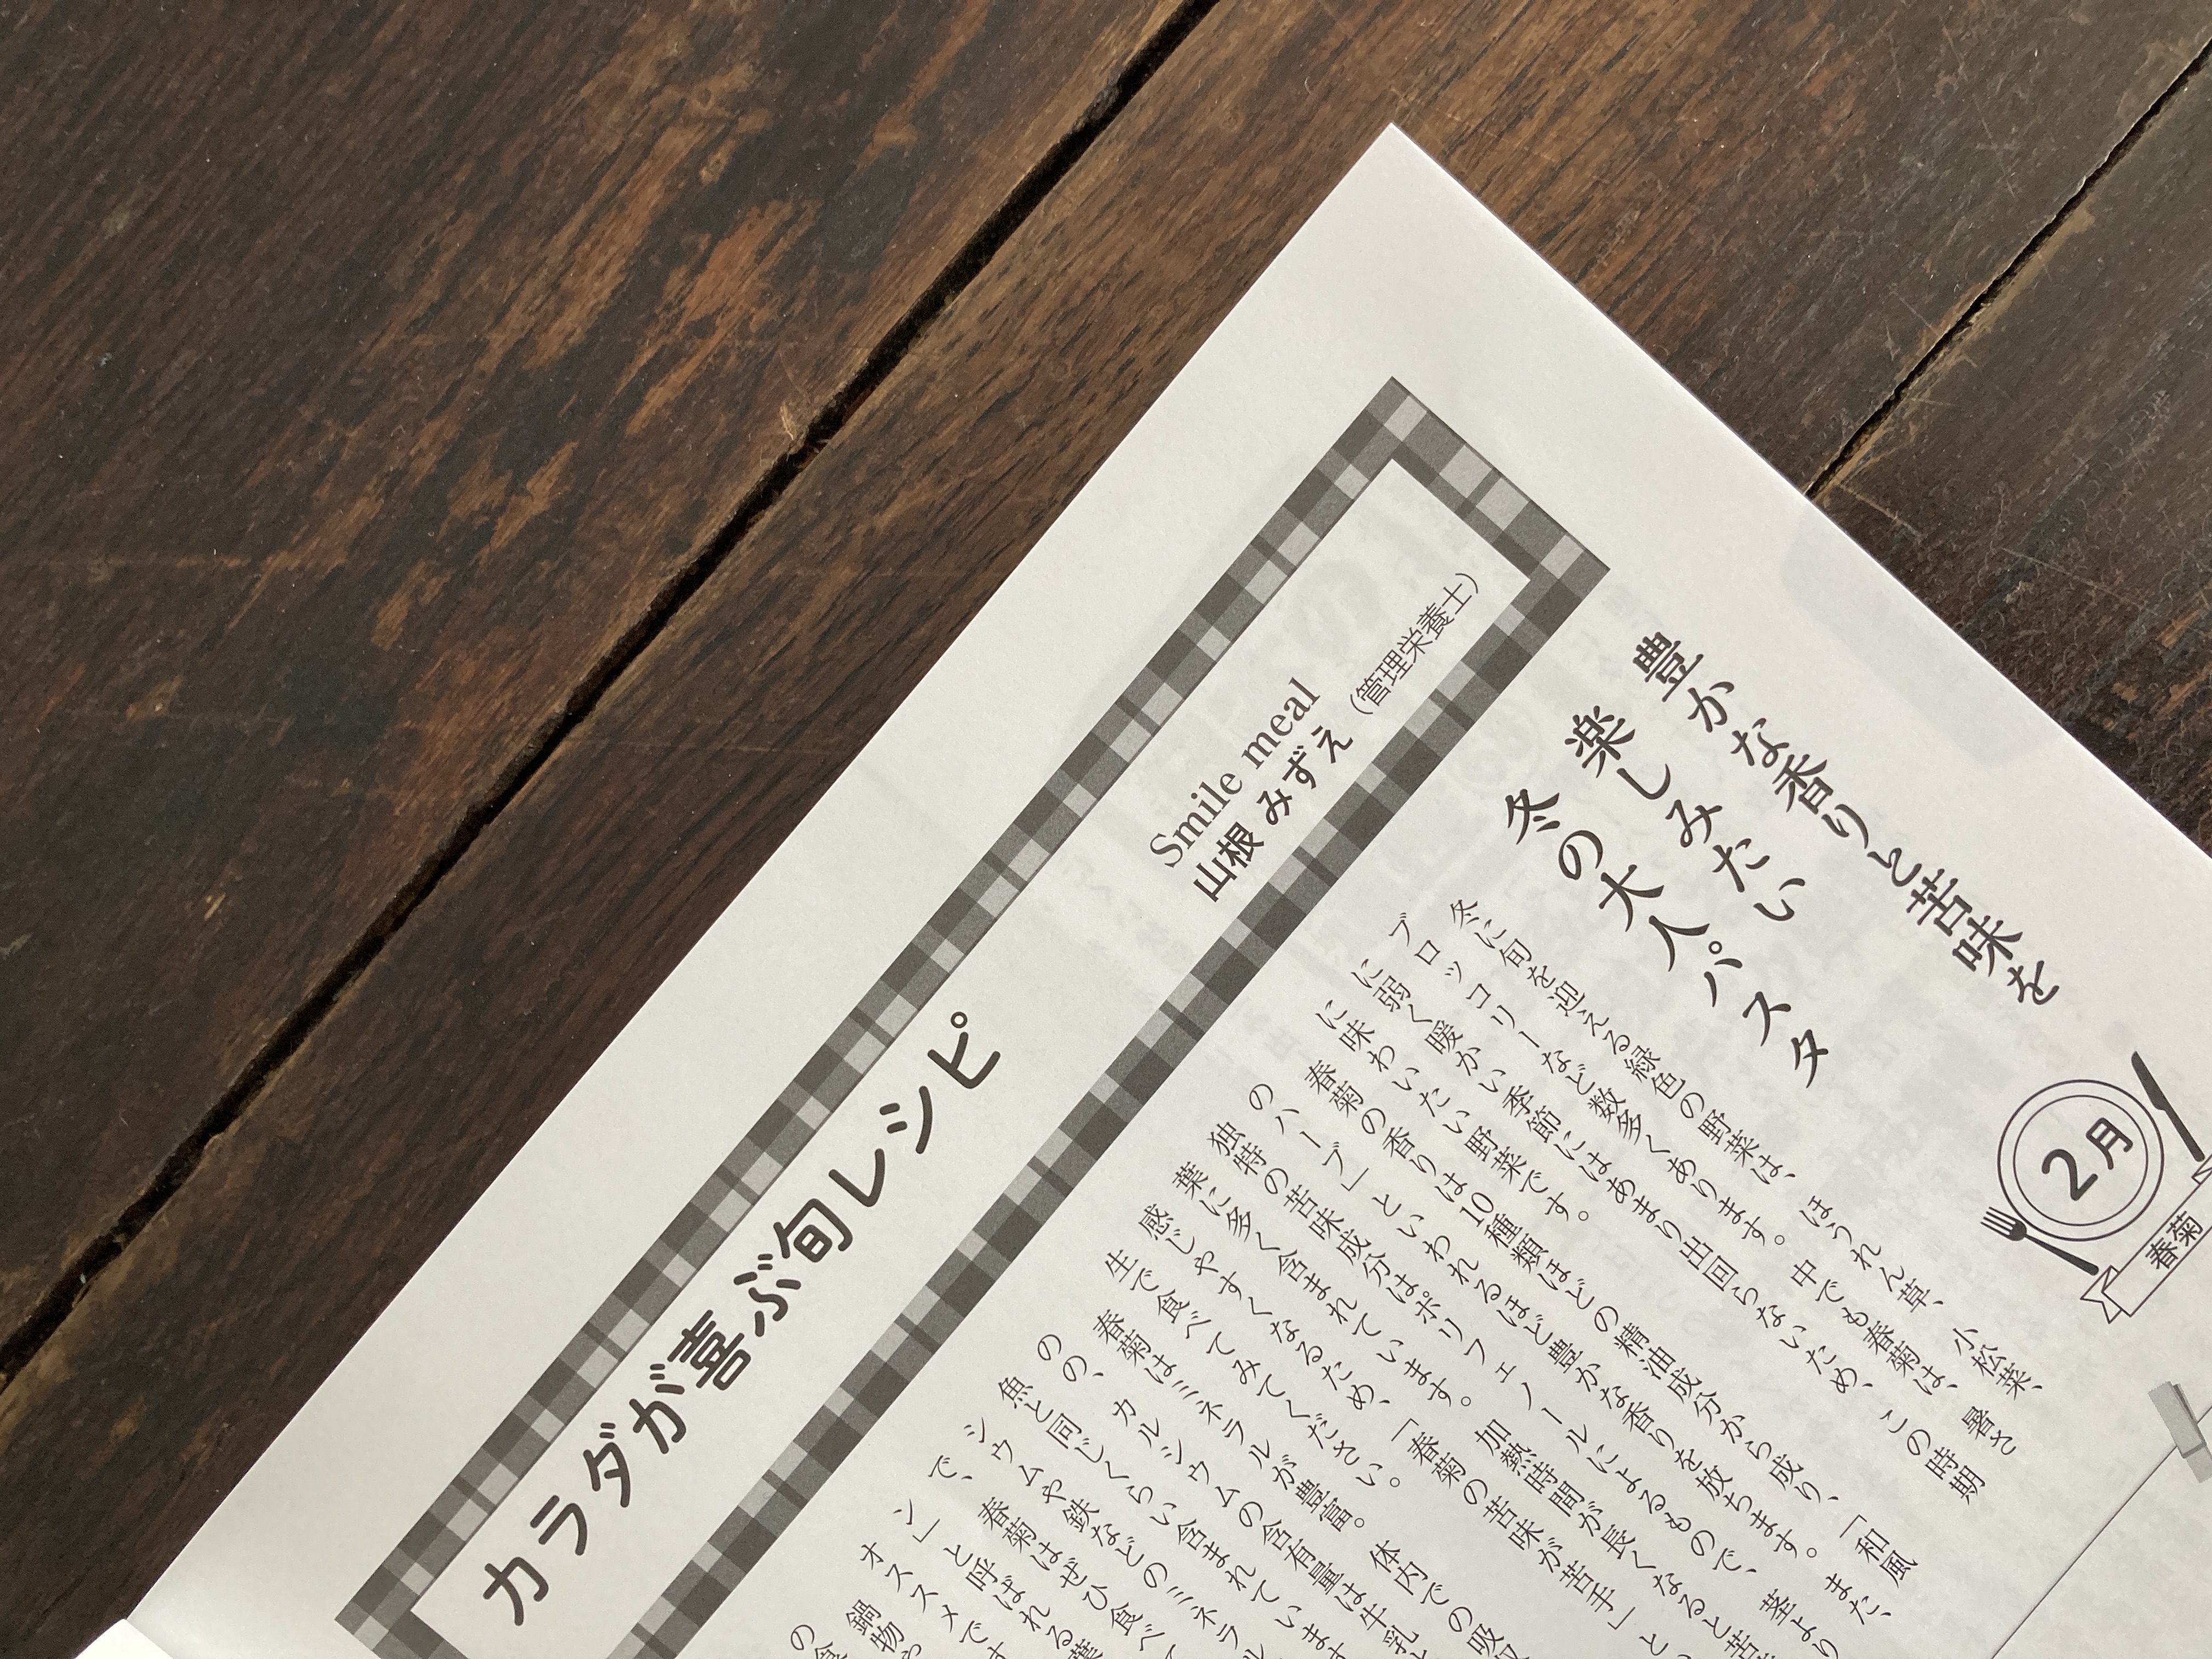 カラダが喜ぶ旬レシピ
Smile meal
山根 みずえ（管理栄養士）
豊かな香りと苦味を
楽しみたい
冬の大人パスタ
2月
春菊
冬に旬を迎える緑色の野菜は、ほうれん草、小松菜、
ブロッコリーなど数多くあります。中でも春菊は、暑さ
に弱く暖かい季節にはあまり出回らないため、この時期
に味わいたい野菜です。
春菊の香りは10種類ほどの精油成分から成り、「和風
のハーブ」といわれるほど豊かな香りを放ちます。また、
独特の苦味成分はポリフェノールによるもので、茎より
葉に多く含まれています。加熱時間が長くなると苦
感じやすくなるため、「春菊の苦味が苦手」と
生で食べてみてください。
春菊はミネラルが豊富。体内での吸
のの、カルシウムの含有量は牛乳と
魚と同じくらい含まれています
シウムや鉄などのミネラル
で、春菊はぜひ食べて
ン」と呼ばれる葉
オススメです
鍋物や
の食